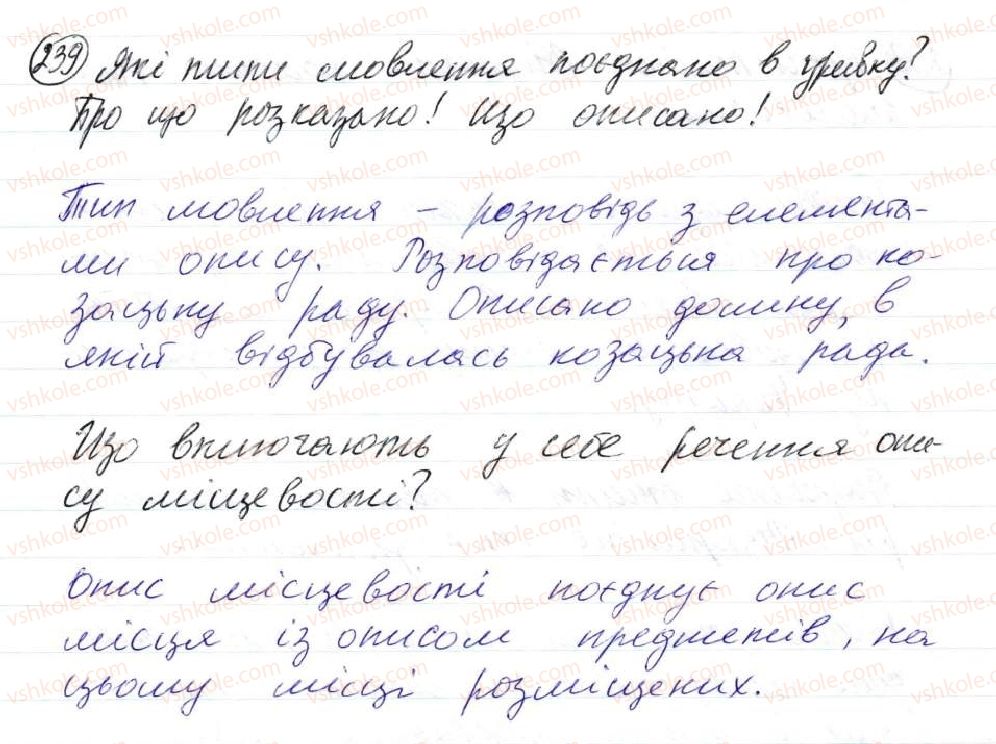 239 Які типи мовлення поєднано в уривку?
Про що розказано! Що описано!
Тип мовлення - розповідь з елемента-
ми опису. Розповідається про ко-
зацьку раду. Описано долину, в
якій відбувалась козацька рада.
Що включають у себе речення опи-
су місцевості?
Опис місцевості поєднує опис
місця із описом предметів, на
цьому місці розміщених.